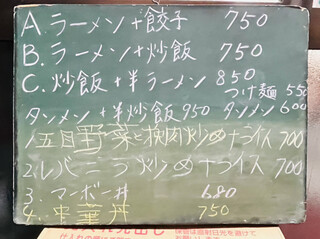 A.ラーメン+餃子 750
B.ラーメン+炒飯 750
C.炒飯+半ラーメン 850
つけ麺 550
タンメン+半炒飯 950 タンメン 600
1.五目野菜と豚肉炒め+ライス 700
2.レバニラ炒め+ライス 700
3.マーボー丼 680
4.中華丼 750